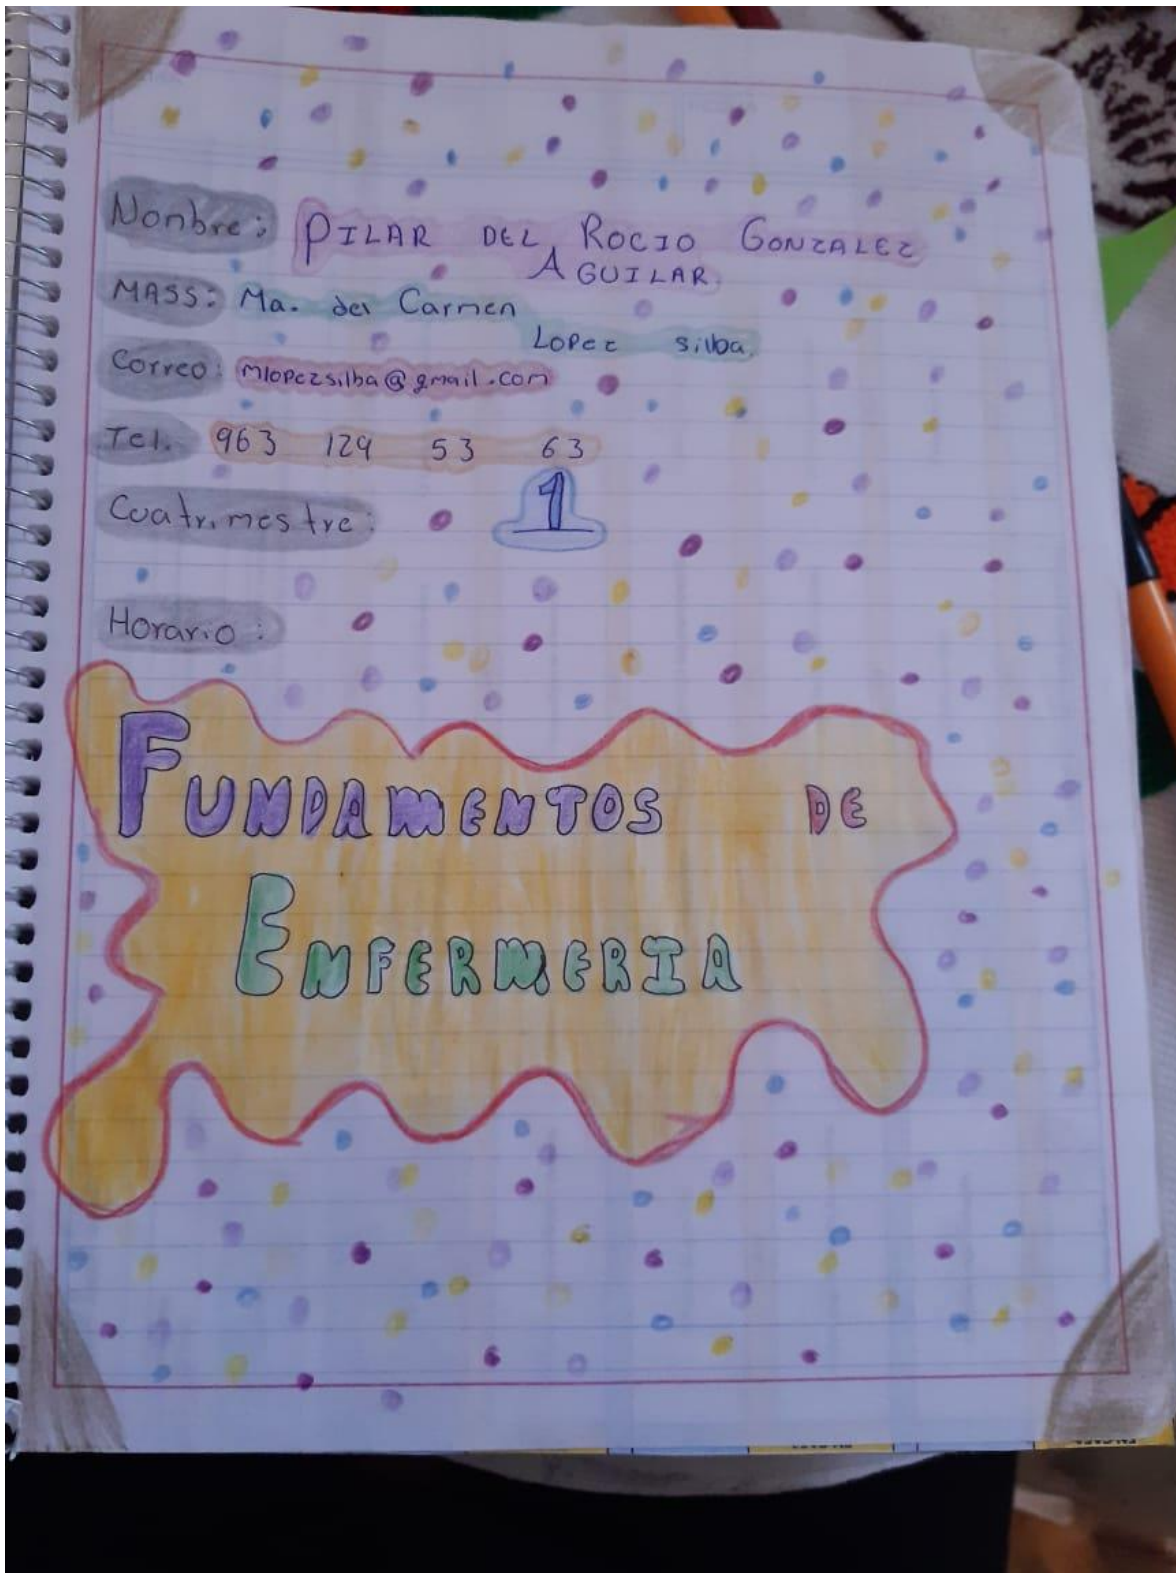 Nombre: PILAR DEL ROCIO GONZALEZ
AGUILAR.
MASS: Ma. del Carmen
Lopez silba.
Correo: mlopezsilba@gmail.com
Tel. 963 129 53 63
Cuatrimestre: 1
Horario:
FUNDAMENTOS DE
ENFERMERIA